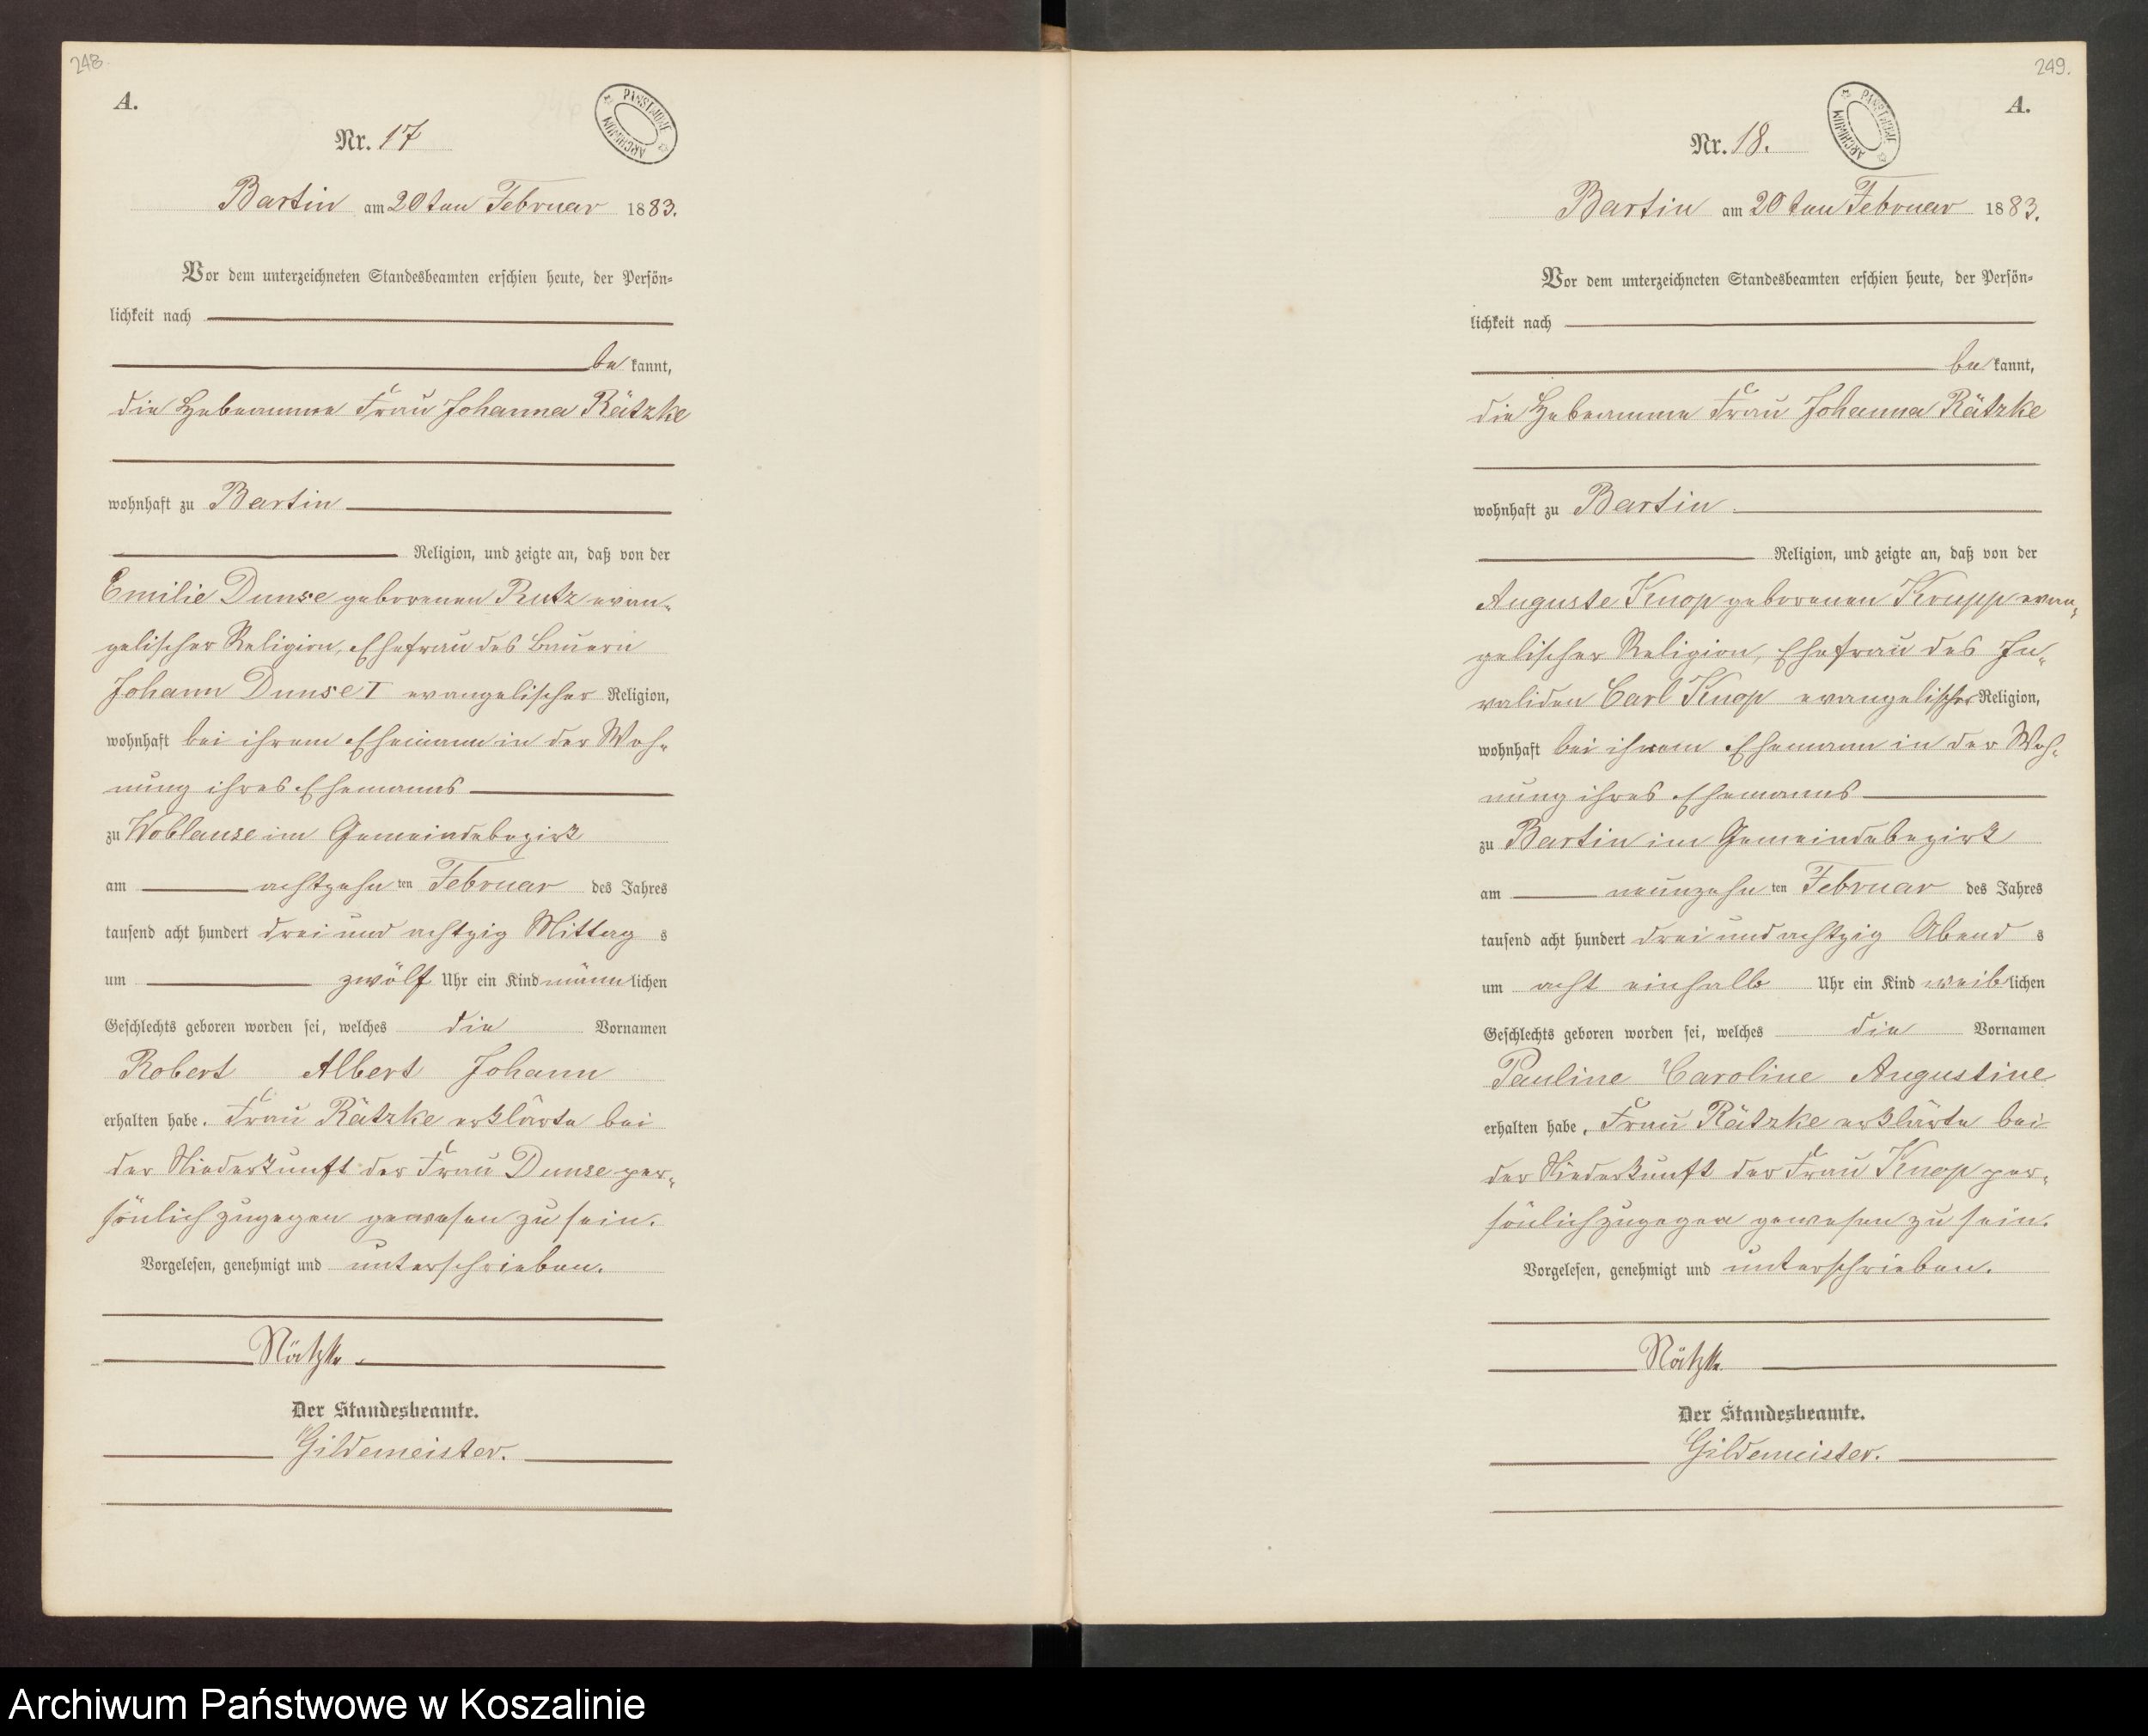 248.
A.
PAŃSTWOWE ARCHIWUM
Nr. 17
Bartin am 20ten Februar 1883.
Vor dem unterzeichneten Standesbeamten erschien heute, der Persön-
lichkeit nach
be kannt,
die Hebeamme Frau Johanna Rätzke
wohnhaft zu Bartin
Religion, und zeigte an, daß von der
Emilie Dunse geborenen Rutz evan-
gelischer Religion, Ehefrau des Bauern
Johann Dunse I evangelischer Religion,
wohnhaft bei ihrem Ehemann in der Woh-
nung ihres Ehemanns
zu Woblanse im Gemeindebezirk
am achtzehn ten Februar des Jahres
tausend acht hundert drei und achtzig Mittag s
um zwölf Uhr ein Kind männ lichen
Geschlechts geboren worden sei, welches die Vornamen
Robert Albert Johann
erhalten habe. Frau Rätzke erklärte bei
der Niederkunft der Frau Dunse per-
sönlich zugegen gewesen zu sein.
Vorgelesen, genehmigt und unterschrieben.
Rätzke.
Der Standesbeamte.
Gildemeister.
249.
A.
PAŃSTWOWE ARCHIWUM
Nr. 18.
Bartin am 20ten Februar 1883.
Vor dem unterzeichneten Standesbeamten erschien heute, der Persön-
lichkeit nach
be kannt,
die Hebeamme Frau Johanna Rätzke
wohnhaft zu Bartin
Religion, und zeigte an, daß von der
Auguste Knop geborenen Krupp evan-
gelischer Religion, Ehefrau des In-
validen Carl Knop evangelischer Religion,
wohnhaft bei ihrem Ehemann in der Woh-
nung ihres Ehemanns
zu Bartin im Gemeindebezirk
am neunzehn ten Februar des Jahres
tausend acht hundert drei und achtzig Abend s
um acht einhalb Uhr ein Kind weib lichen
Geschlechts geboren worden sei, welches die Vornamen
Pauline Caroline Augustine
erhalten habe. Frau Rätzke erklärte bei
der Niederkunft der Frau Knop per-
sönlich zugegen gewesen zu sein.
Vorgelesen, genehmigt und unterschrieben.
Rätzke
Der Standesbeamte.
Gildemeister.
Archiwum Państwowe w Koszalinie